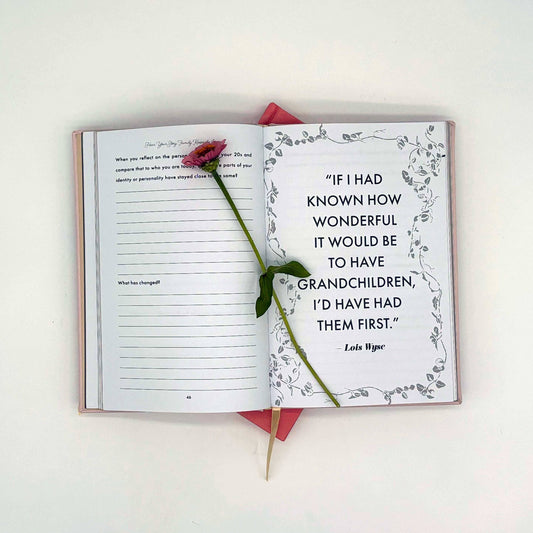 Hear Your Story
When you reflect on the your 20s and
compare that to who you are parts of your
identity or personality have stayed the same?
What has changed?
46
“IF I HAD
KNOWN HOW
WONDERFUL
IT WOULD BE
TO HAVE
GRANDCHILDREN,
I’D HAVE HAD
THEM FIRST.”
– Lois Wyse